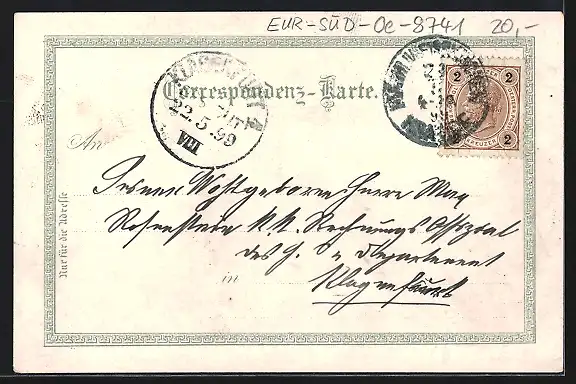 EUR-SÜD-Oe-8741 20,-
Correspondenz-Karte.
KLAGENFURT 1
22.5.99
VIII
2 2
KREUZER
2 2
An
Seiner Wohlgeboren Herrn Max
Rosenstein k.k. Rechnungs Offizial
des
Departement
in Klagenfurt
Nur für die Adresse